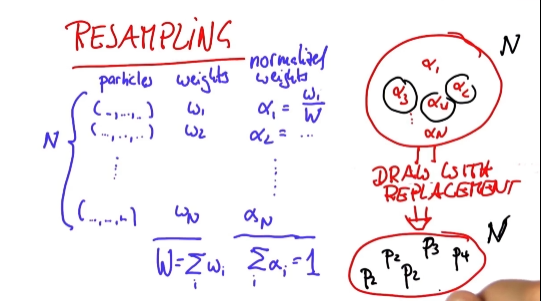 RESAMPLING
particles weights normalized weights
(-,...,..) w₁ α₁ = w₁/W
N
(...,..,..) w₂ α₂ = ...
(...,..,..) w_N α_N
W = Σ_i w_i Σ_i α_i = 1
N
α₁
α₃ α₂
α_N
DRAW WITH
REPLACEMENT
N
P₂ P₃ P₄
P₂ P₂